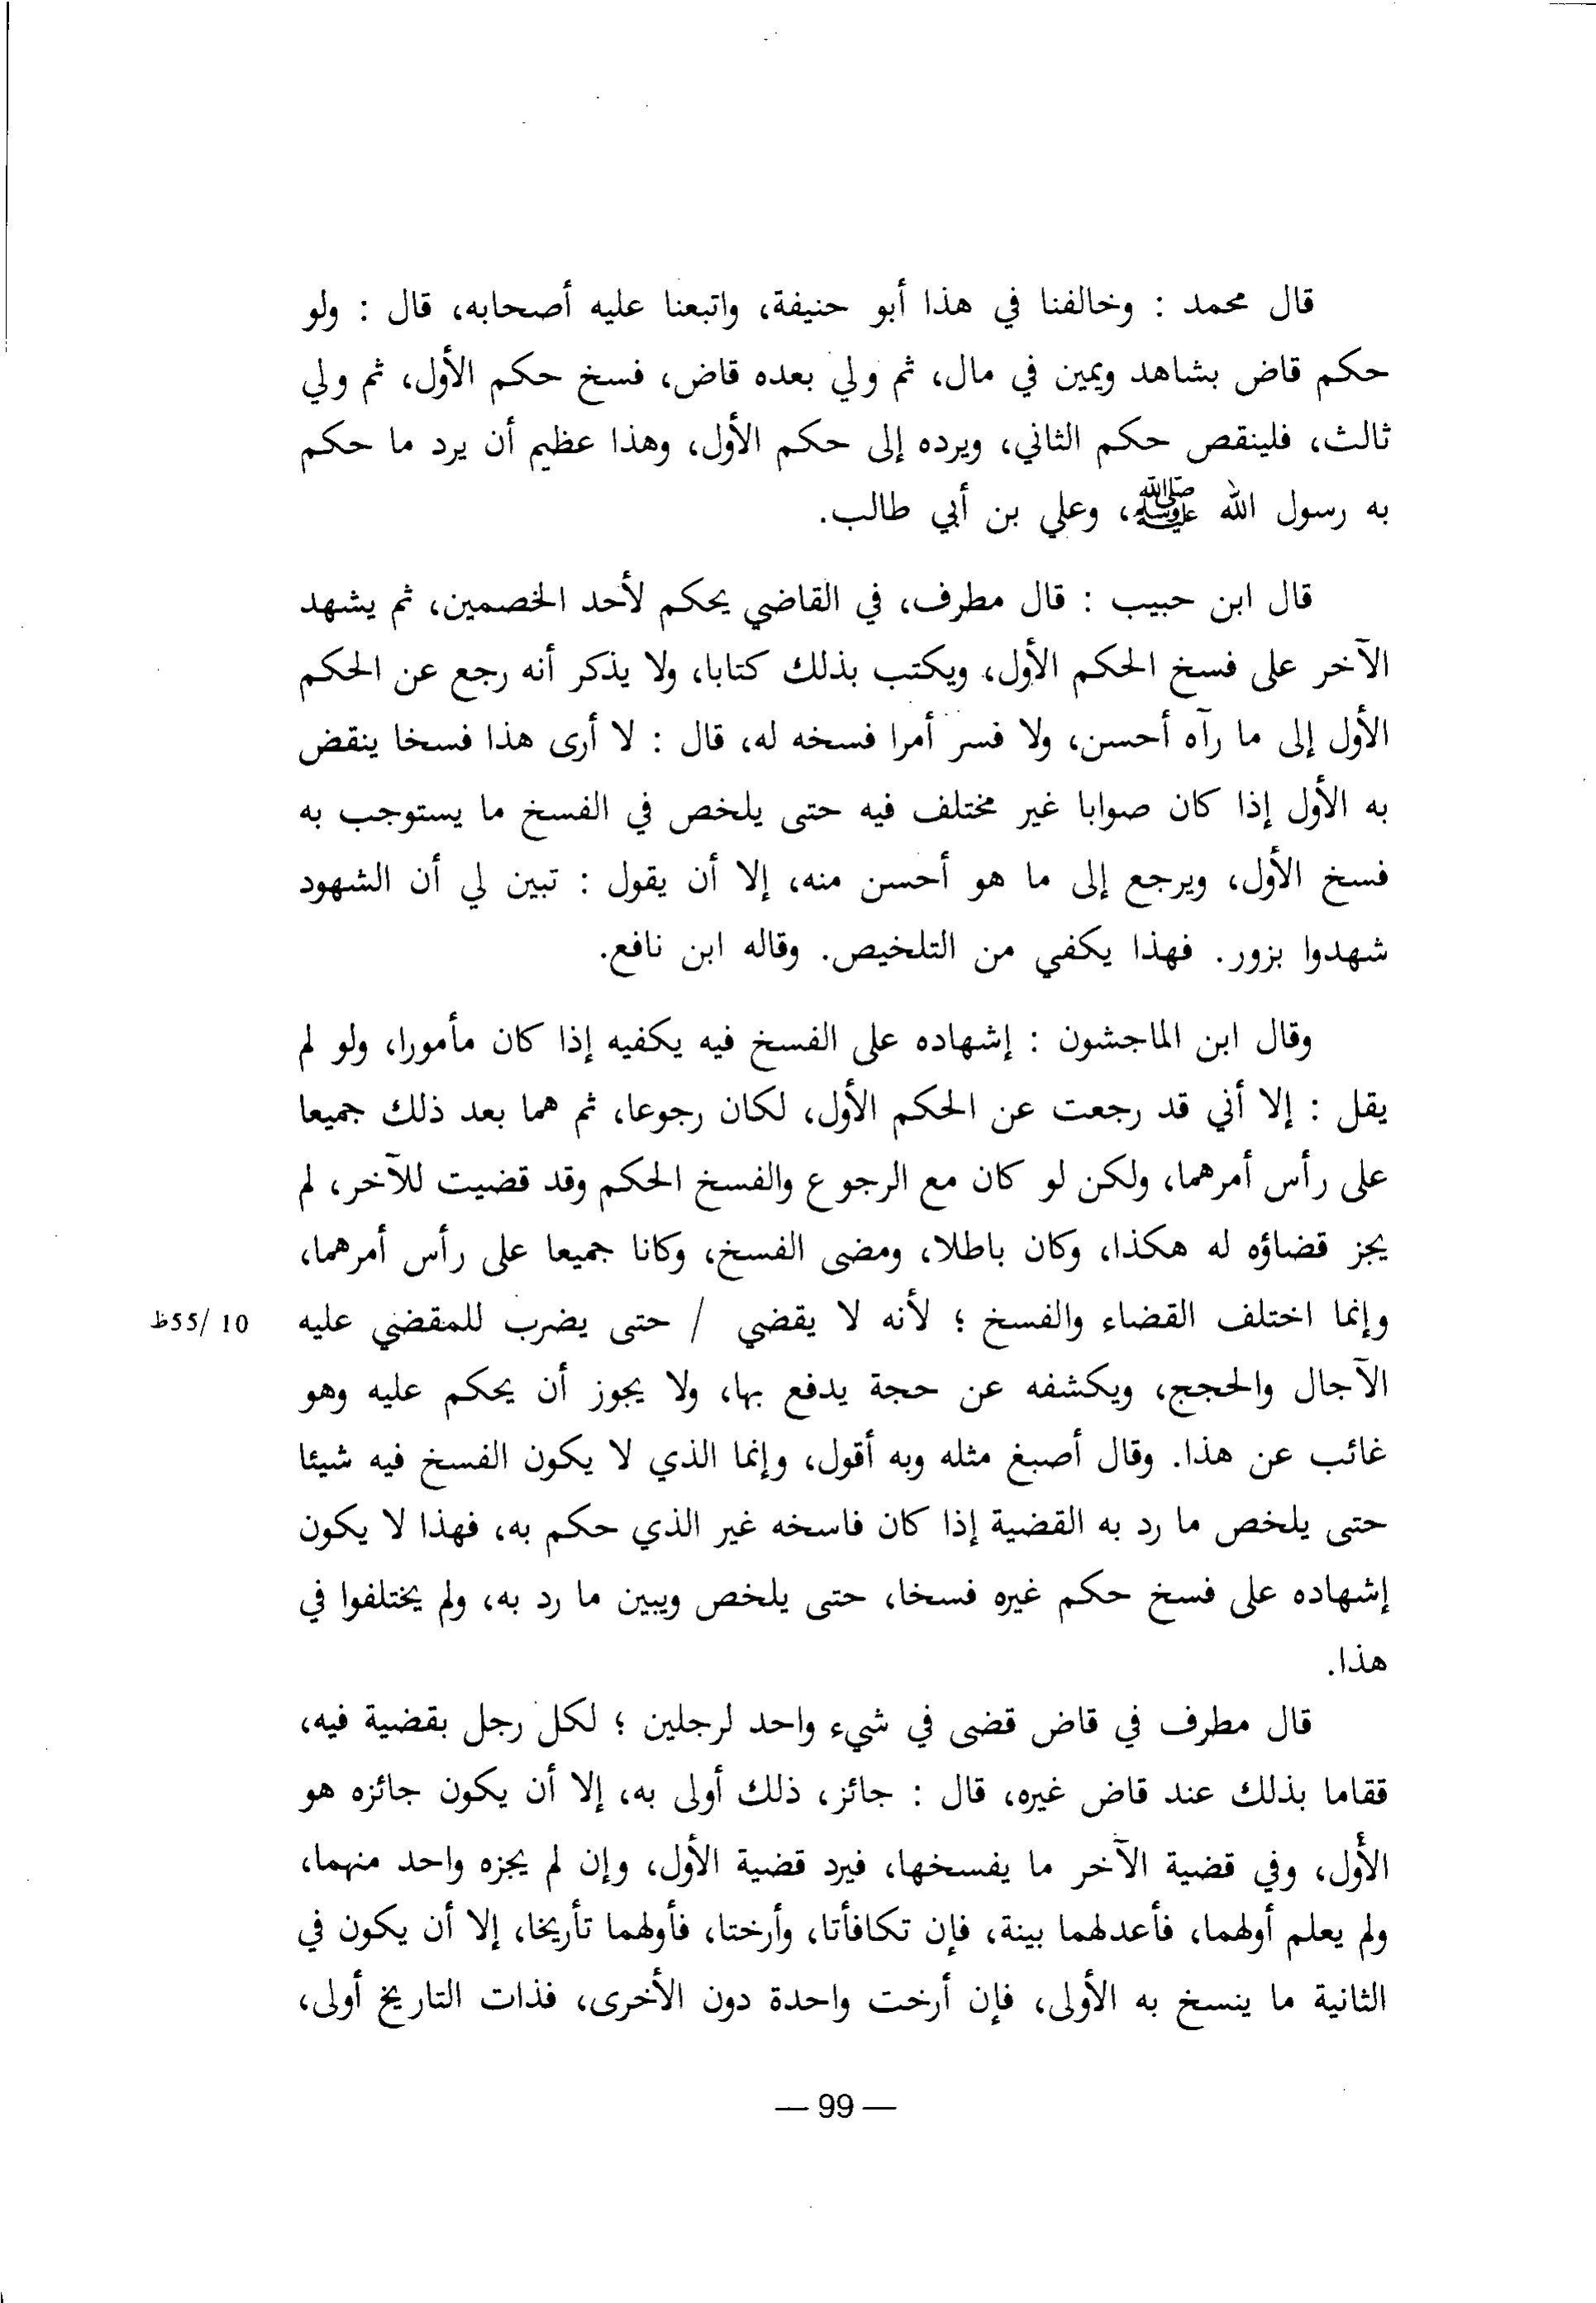 قال محمد : وخالفنا في هذا أبو حنيفة، واتبعنا عليه أصحابه، قال : ولو
حكم قاض بشاهد ويمين في مال، ثم ولي بعده قاض، فسخ حكم الأول، ثم ولي
ثالث، فلينقص حكم الثاني، ويرده إلى حكم الأول، وهذا عظيم أن يرد ما حكم
به رسول الله ﷺ، وعلي بن أبي طالب.
قال ابن حبيب : قال مطرف، في القاضي يحكم لأحد الخصمين، ثم يشهد
الآخر على فسخ الحكم الأول، ويكتب بذلك كتابا، ولا يذكر أنه رجع عن الحكم
الأول إلى ما رآه أحسن، ولا فسر أمرا فسخه له، قال : لا أرى هذا فسخا ينقض
به الأول إذا كان صوابا غير مختلف فيه حتى يلخص في الفسخ ما يستوجب به
فسخ الأول، ويرجع إلى ما هو أحسن منه، إلا أن يقول : تبين لي أن الشهود
شهدوا بزور. فهذا يكفي من التلخيص. وقاله ابن نافع.
وقال ابن الماجشون : إشهاده على الفسخ فيه يكفيه إذا كان مأمورا، ولو لم
يقل : إلا أني قد رجعت عن الحكم الأول، لكان رجوعا، ثم هما بعد ذلك جميعا
على رأس أمرهما، ولكن لو كان مع الرجوع والفسخ الحكم وقد قضيت للآخر، لم
يجز قضاؤه له هكذا، وكان باطلا، ومضى الفسخ، وكانا جميعا على رأس أمرهما،
وإنما اختلف القضاء والفسخ ؛ لأنه لا يقضي / حتى يضرب للمقضي عليه
10 /55ظ
الآجال والحجج، ويكشفه عن حجة يدفع بها، ولا يجوز أن يحكم عليه وهو
غائب عن هذا. وقال أصبغ مثله وبه أقول، وإنما الذي لا يكون الفسخ فيه شيئا
حتى يلخص ما رد به القضية إذا كان فاسخه غير الذي حكم به، فهذا لا يكون
إشهاده على فسخ حكم غيره فسخا، حتى يلخص ويبين ما رد به، ولم يختلفوا في
هذا.
قال مطرف في قاض قضى في شيء واحد لرجلين ؛ لكل رجل بقضية فيه،
ققاما بذلك عند قاض غيره، قال : جائز، ذلك أولى به، إلا أن يكون جائزه هو
الأول، وفي قضية الآخر ما يفسخها، فيرد قضية الأول، وإن لم يجزه واحد منهما،
ولم يعلم أولهما، فأعدلهما بينة، فإن تكافأتا، وأرختا، فأولهما تأريخا، إلا أن يكون في
الثانية ما ينسخ به الأولى، فإن أرخت واحدة دون الأخرى، فذات التاريخ أولى،
— 99 —